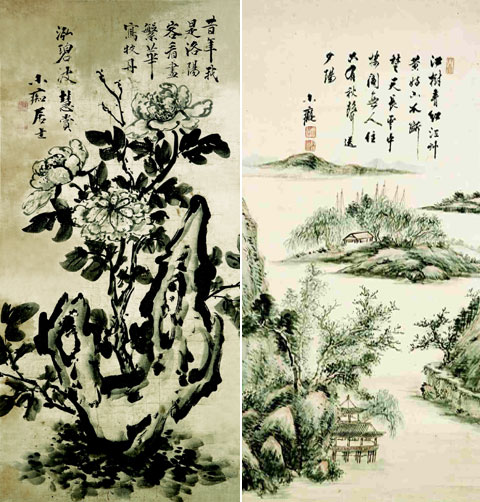 昔年我
是洛陽
客看盡
繁華
寫牧丹
小痴居士
江樹青紅江艸
黃好山不斷
楚天長雲中
樓閣無人住
只有秋聲送
夕陽
小癡